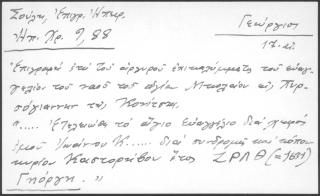 Σούλη, Ἐπιγρ. Ἠπείρ.
Γεώργιος
Ἠπ. Χρ. 9, 88
17. αἰ.
Ἐπιγραφὴ ἐπὶ τοῦ ἀργυροῦ ἐπικαλύμματος τοῦ εὐαγ-
γελίου τοῦ ναοῦ τοῦ ἁγίου Νικολάου εἰς Πυρ-
σόγιαννην τῆς Κονίτσης
"..... Ἐτελειώθη τὸ ἅγιο εὐαγγέλιο διὰ χειρὸς
ἐμοῦ Ἰωάννου Κ..... διὰ συνδρομῆς καὶ κόπου
κυρίου Καστορηνοῦ ἔτος ΖΡΛΘ (=1631)
Γηόργη. "